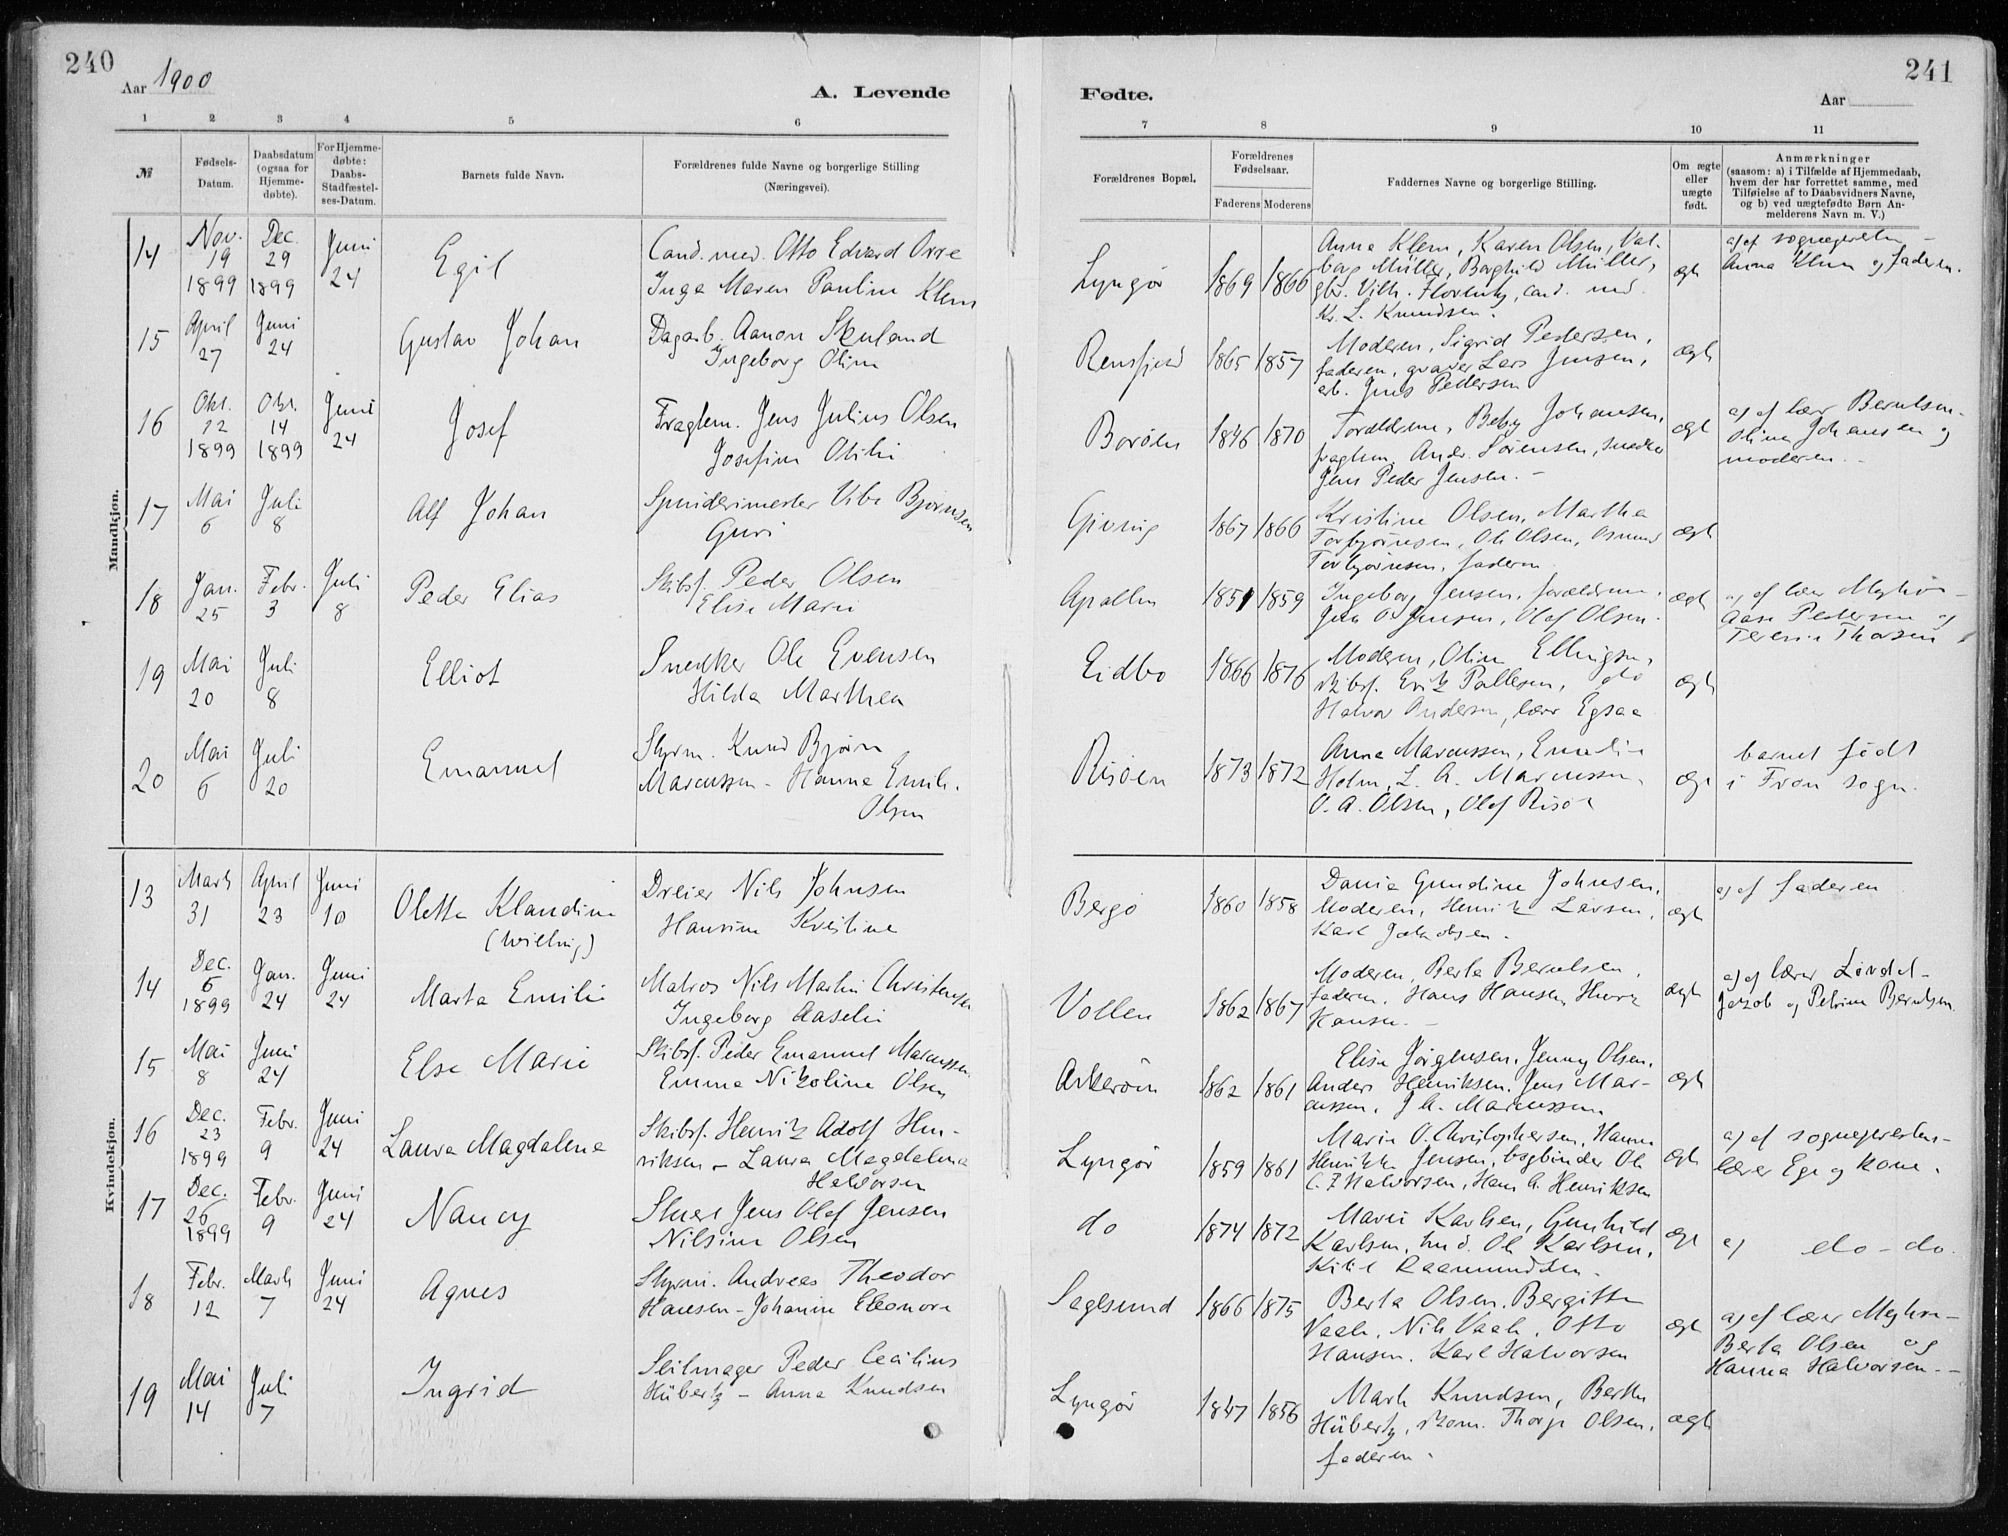 240
Aar 1900
A. Levende
1 2 3 4 5 6
№
Fødsels-
Datum.
Daabsdatum
(ogsaa for
Hjemme-
døbte).
For Hjemme-
døbte:
Daabs-
Stadfæstel-
ses-Datum.
Barnets fulde Navn.
Forældrenes fulde Navne og borgerlige Stilling
(Næringsvei).
Mandkjøn.
14 Nov. 19 1899 Dec. 29 1899 Juni 24 Egil
Cand. med. Otto Edvard Orre
Inga Maren Pauline Klem
15 April 27 Juni 24 Gustav Johan
Dagarb. Aanon Skuland
Ingeborg Oline
16 Okt. 12 1899 Okt. 14 1899 Juni 24 Josef
Fragtem. Jens Julius Olsen
Josefine Otilie
17 Mai 6 Juli 8 Alf Johan
Spinderimester Bjørnsen
Guri
18 Jan. 25 Febr. 3 Juli 8 Peder Elias
Skibsf. Peder Olsen
Elise Marie
19 Mai 20 Juli 8 Elliot
Snedker Ole Evensen
Hilda Marthea
20 Mai 6 Juli 20 Emanuel
Styrm. Knud Bjørn
Marcussen - Hanna Emilie
Olsen
Kvindekjøn.
13 Marts 31 April 23 Juni 10 Oletta Klaudine
Dreier Nils Johnsen
Hansine Kristine
14 Dec. 6 1899 Jan. 24 Juni 24 Marta Emilie
Matros Nils Martin Christensen
Ingeborg Aaselie
15 Mai 8 Juni 24 Else Marie
Skibsf. Peder Emanuel Marcussen
Emma Nikoline Olsen
16 Dec. 23 1899 Febr. 9 Juni 24 Laura Magdalene
Skibsf. Henrik Adolf Hen-
riksen - Laura Magdalena
Halvorsen
17 Dec. 26 1899 Febr. 9 Juni 24 Nancy
Jens Olaf Jensen
Nilsine Olsen
18 Febr. 12 Marts 7 Juni 24 Agnes
Styrm. Andreas Theodor
Hansen - Johanne Eleonore
19 Mai 14 Juli 7 Ingrid
Seilmager Peder Cecilius
Hübertz - Anna Knudsen
241
Fødte.
Aar
7 8 9 10 11
Forældrenes Bopæl.
Forældrenes
Fødselsaar.
Faderens Moderens
Faddernes Navne og borgerlige Stilling.
Om ægte
eller
uægte
født.
Anmærkninger
(saasom: a) i Tilfælde af Hjemmedaab,
hvem der har forrettet samme, med
Tilføielse af to Daabsvidners Navne,
og b) ved uægtefødte Børn An-
melderens Navn m. V.)
Lyngør 1869 1866
Anna Klem, Karen Olsen, Val-
borg Müller, Borghild Müller,
Vilh. cand. med.
Kr. L. Knudsen.
ægte
a) af sognepresten -
Anna Klem og faderen.
1865 1857
Moderen, Sigrid Pedersen,
faderen, Lars Jensen,
arb. Jens Pedersen
ægte
Borøen 1846 1870
Forældrene, Betsy Johansen,
fragtem. Andr. Sørensen, snedker
Jens Peder Jensen. -
ægte
a) af lærer Berntsen -
Oline Johansen og
moderen. -
Giving 1867 1866
Kristine Olsen, Martha
Torbjørnsen, Ole Olsen, Osmund
Torbjørnsen, faderen
ægte
1851 1859
Ingeborg Jensen, forældrene,
Jens O. Jensen, Olaf Olsen.
ægte
a) af lærer
Aase Pedersen og
Terese Thorsen
Eidbo 1866 1876
Moderen, Oline Ellingsen,
skibsf. Erik Pallesen, do
Halvor Andersen, lærer Egsaa
ægte
Risøen 1873 1872
Anna Marcussen, Emelie
Holm, L. A. Marcussen,
O. A. Olsen, Olaf Risøe
ægte
barnet født
i Fron sogn.
Bergø 1860 1858
Dania Gundine Johnsen,
Moderen, Henrik Larsen,
Karl Jakobsen.
ægte
a) af faderen
Vollen 1862 1867
Moderen, Berta Berntsen,
faderen, Hans Hansen,
Hansen. -
ægte
a) af lærer Løvdal -
Jakob og Petrine Berntsen
Askerøen 1862 1861
Elise Jørgensen, Jenny Olsen,
Anders Henriksen, Jens Mar-
cussen, J. A. Marcussen.
ægte
Lyngør 1859 1861
Marie O. Christophersen, Hanna
Henrikke Jensen, bogbinder Ole
C. F. Halvorsen, Hans A. Henriksen
ægte
a) af sognepresten -
lærer Ege og kone.
do 1874 1872
Marie Karlsen, Gunhild
Karlsen, Ole Karlsen,
Kittil Raamundsen.
ægte
a) do - do.
Saglsund 1866 1875
Berta Olsen, Bergitte
Vaale, Nils Vaale, Otto
Hansen, Karl Halvorsen
ægte
a) af lærer
Berta Olsen og
Hanna Halvorsen. -
Lyngør 1847 1856
Knudsen, Berthe
Hübertz, Thorje Olsen,
faderen.
ægte